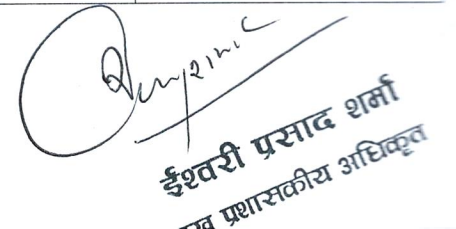 ईश्वरी प्रसाद शर्मा
प्रशासकीय अधिकृत